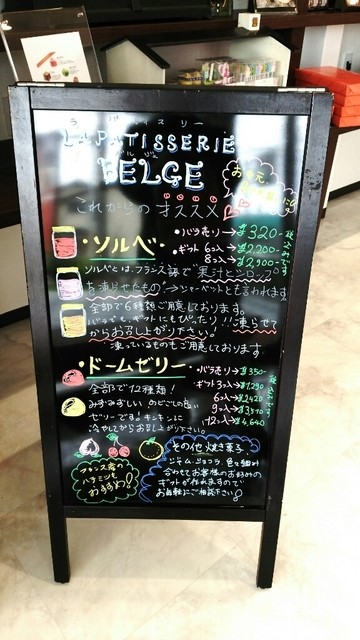 ラ パティスリー
LA PATISSERIE
BELGE
お中元
これからのオススメ
・ソルベ・
・バラ売り→¥320-
・ギフト 6コ入→¥2,200-
8コ入→¥2,900-
税込みです
ソルベとは、フランス語で"果汁とシロップ
を凍らせたもの"→シャーベットとも言われます。
全部で6種類ご用意しております。
バラでも、ギフトにもぴったり!!凍らせて
からお召し上がり下さい!
凍っているものもご用意しております
・ドームゼリー・
・バラ売り→¥350-
全部で12種類!
ギフト3コ入→¥1,290
みずみずしい のどごしの良い
6コ入→¥2,420
ゼリーです!キンキンに
9コ入→¥3,570
冷やしてからお召し上がり下さい。
12コ入→¥4,640
フランス産の
ハチミツも
おすすめ!
その他 焼き菓子
ジャム・ショコラ、色々組み
合わせてお客様のお好みの
ギフトが作れますので
お気軽にご相談下さい!